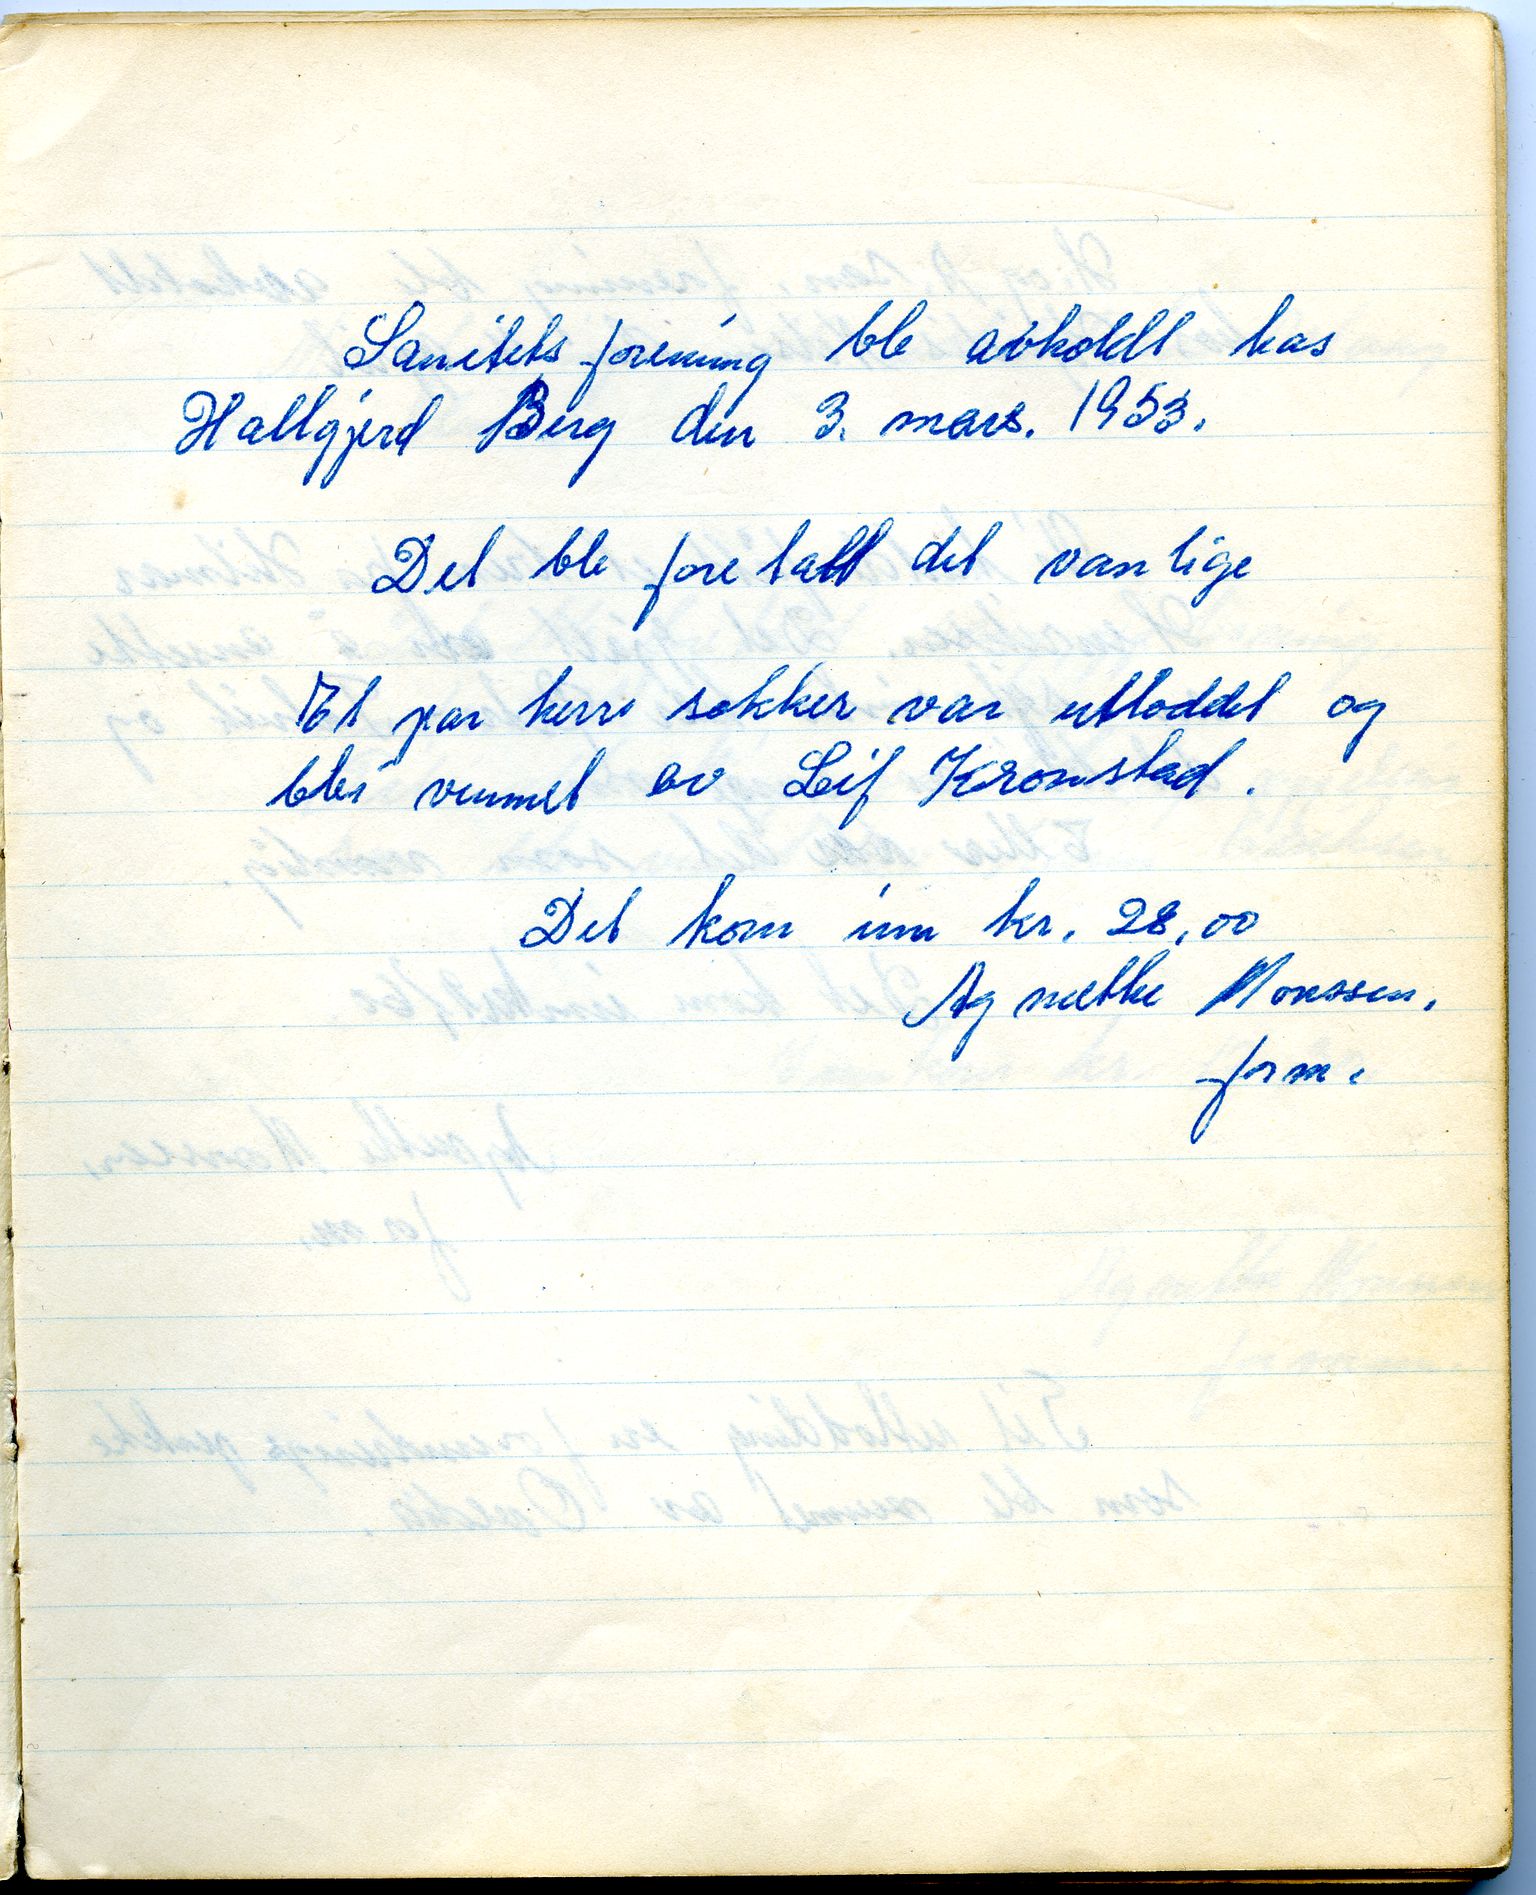 Sanitets forening ble avholdt hos
Hallgjerd Berg den 3. mars. 1953.
Det ble fore tatt det vanlige
Et par herre sokker var utloddet og
blei vunnet av Leif Kronstad.
Det kom inn kr. 28,00
Ag nethe Monssen.
form.